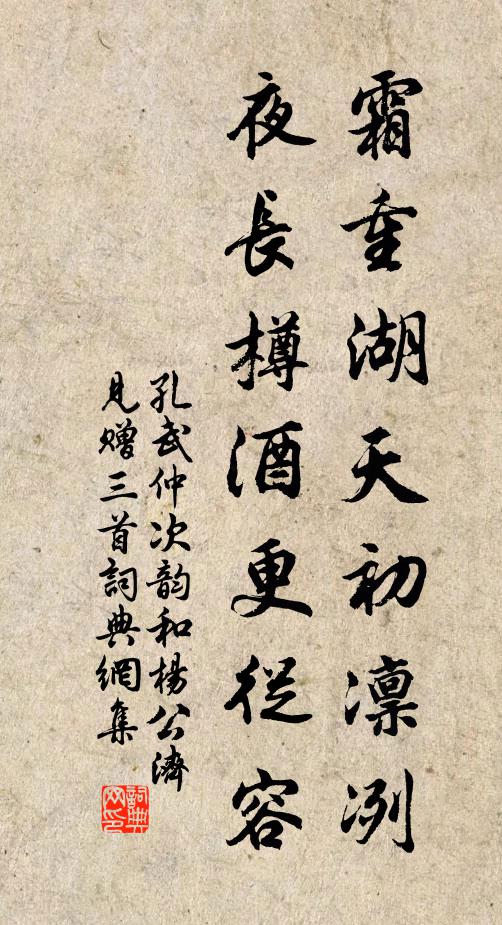 霜重湖天初凛冽
夜長樽酒更從容
孔武仲次韵和楊公濟
見贈三首詞典網集
詞典网印